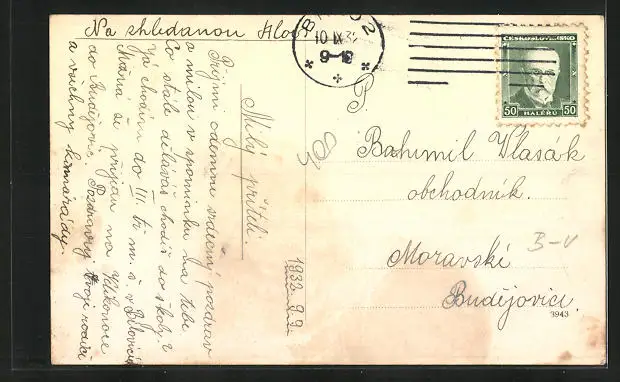 Na shledanou
Milý příteli.
Přijmi odemne srdečný pozdrav
a milou vspomínku na tebe
Co stále děláváš chodíš do školy.?
Já chodím do III. tř. m. š. v
Možná že přijdu na Velikonoce
do Budějovic. Pozdravuj tvoje rodiče
a všechny kamarády.
1932 9.9
10 IX 32
ČESKOSLOVENSKO
50 50
HALÉŘŮ
P.
Bahumil Vlasák
obchodník.
Moravski
Budějovici.
B-V
400
3943